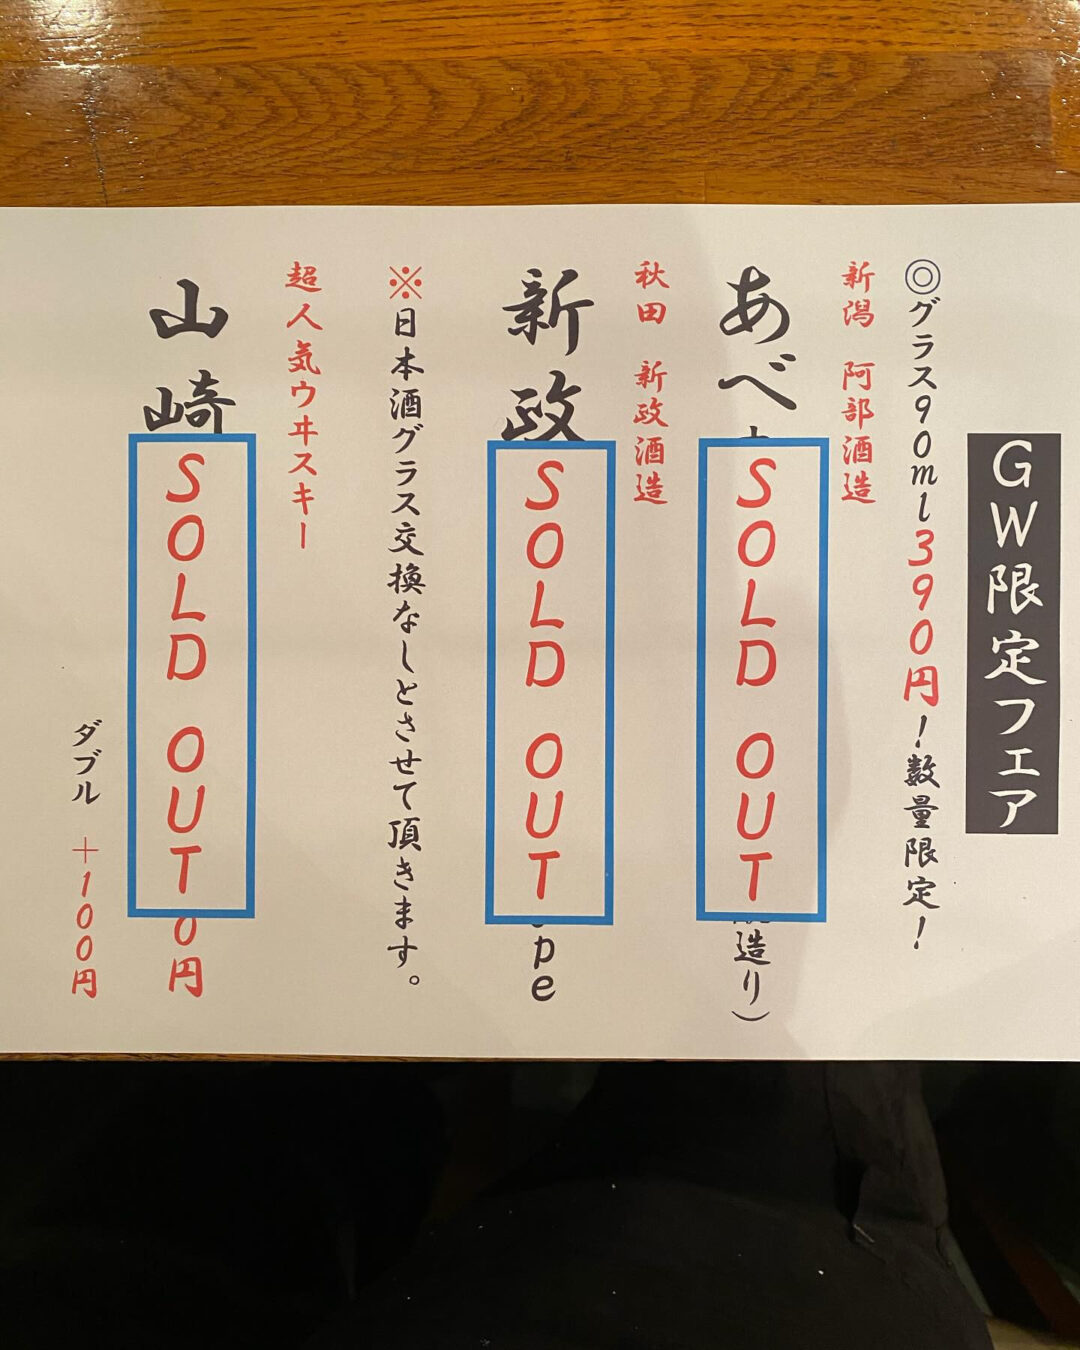 GW限定フェア
◎グラス90ml390円！数量限定！
新潟 阿部酒造
あべ
SOLD OUT
造り）
秋田 新政酒造
新政
SOLD OUT
pe
※日本酒グラス交換なしとさせて頂きます。
超人気ウヰスキー
山崎
SOLD OUT
0円
ダブル +100円